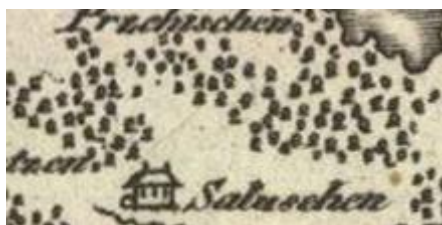 Przchischen
tzen.
Saluschen